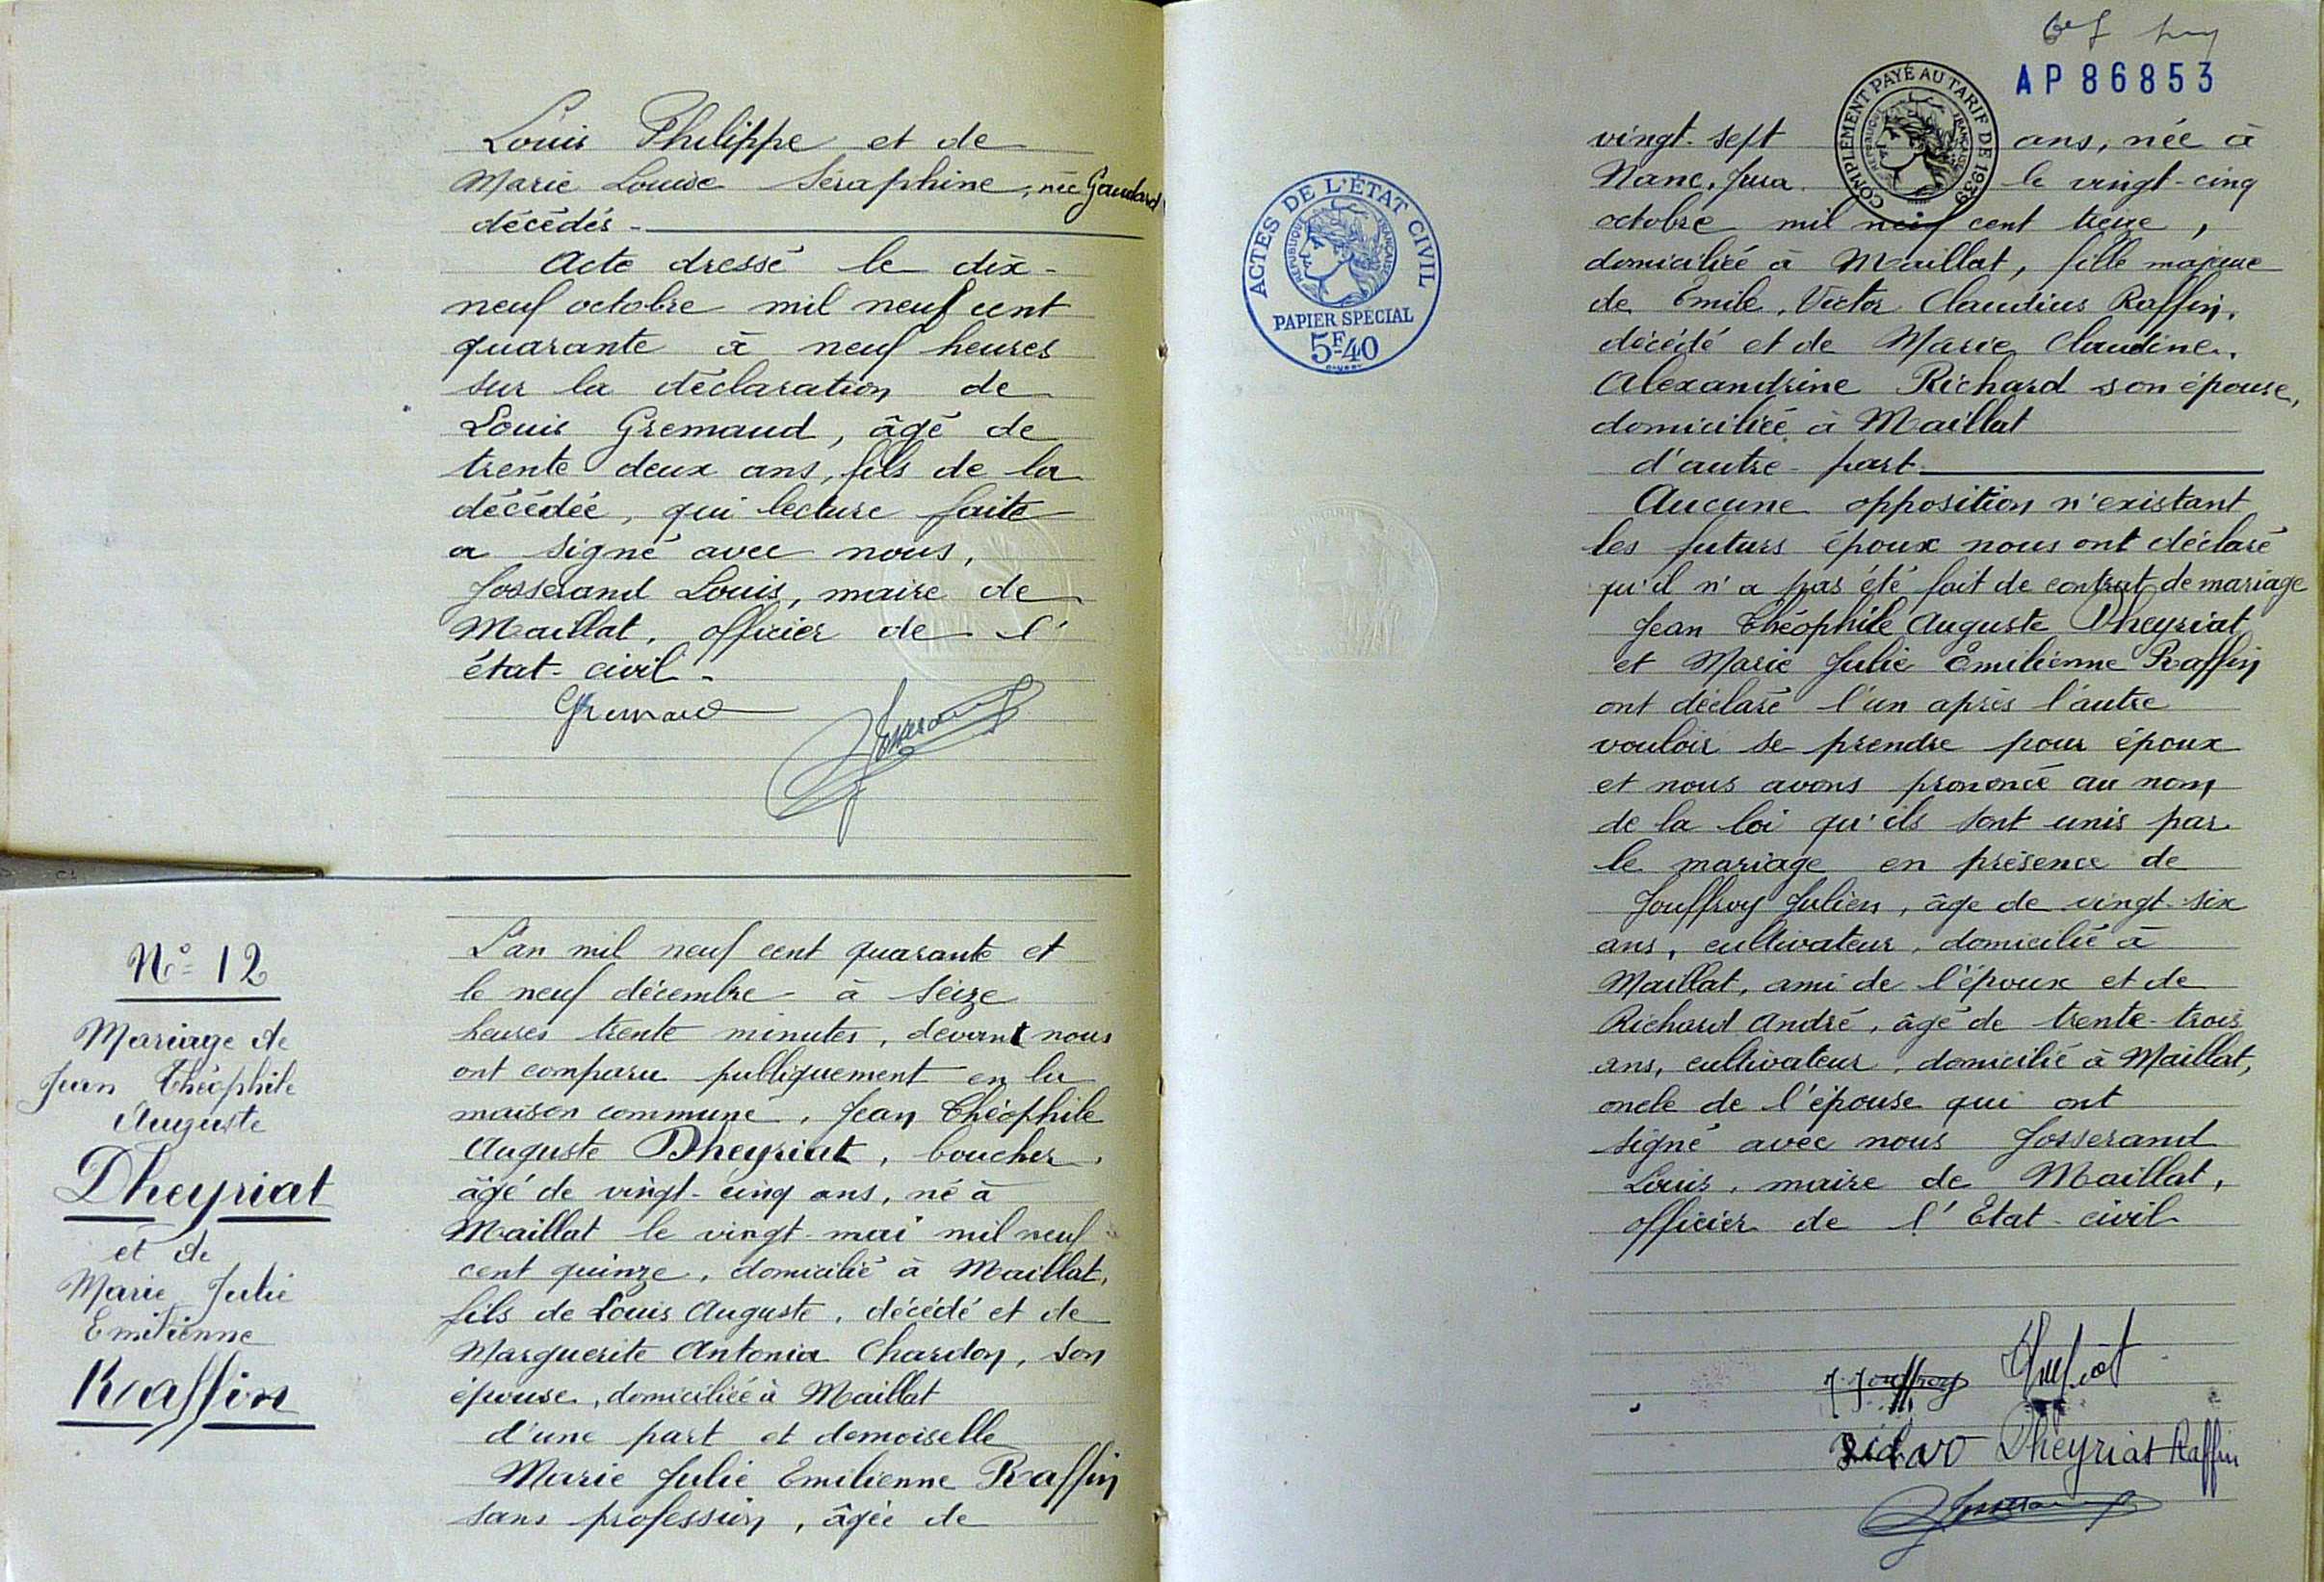 Louis Philippe et de
Marie Louise Séraphine, née Gaudard
décédés -
Acte dressé le dix-
neuf octobre mil neuf cent
quarante à neuf heures
sur la déclaration de
Louis Gremaud, âgé de
trente deux ans, fils de la
décédée, qui lecture faite
a signé avec nous,
Josserand Louis, maire de
Maillat, officier de l'
état-civil.
Gremaud
Josserand
N° 12
Mariage de
Jean Théophile
Auguste
Dheyriat
et de
Marie Julie
Emilienne
Raffin
L'an mil neuf cent quarante et
le neuf décembre à seize
heures trente minutes, devant nous
ont comparu publiquement en la
maison commune, Jean Théophile
Auguste Dheyriat, boucher,
âgé de vingt-cinq ans, né à
Maillat le vingt mai mil neuf
cent quinze, domicilié à Maillat,
fils de Louis Auguste, décédé et de
Marguerite Antonia Chardon, son
épouse, domiciliée à Maillat
d'une part et demoiselle
Marie Julie Emilienne Raffin
sans profession, âgée de
AP 86853
COMPLÉMENT PAYÉ AU TARIF DE 1939
RÉPUBLIQUE FRANÇAISE
ACTES DE L'ÉTAT CIVIL
RÉPUBLIQUE FRANÇAISE
PAPIER SPÉCIAL
5F40
vingt-sept ans, née à
Nanc, Jura. le vingt-cinq
octobre mil neuf cent treize,
domiciliée à Maillat, fille majeure
de Emile, Victor Claudius Raffin,
décédé et de Marie Claudine,
Alexandrine Richard son épouse,
domiciliée à Maillat
d'autre part.
Aucune opposition n'existant
les futurs époux nous ont déclaré
qu'il n'a pas été fait de contrat de mariage
Jean Théophile Auguste Dheyriat
et Marie Julie Emilienne Raffin
ont déclaré l'un après l'autre
vouloir se prendre pour époux
et nous avons prononcé au nom
de la loi qu'ils sont unis par
le mariage en présence de
Jouffroy Julien, âge de vingt-six
ans, cultivateur, domicilié à
Maillat, ami de l'époux et de
Richard André, âgé de trente-trois
ans, cultivateur, domicilié à Maillat,
oncle de l'épouse qui ont
signé avec nous Josserand
Louis, maire de Maillat,
officier de l'Etat-civil
J. Jouffroy
Dheyriat Raffin
Josserand